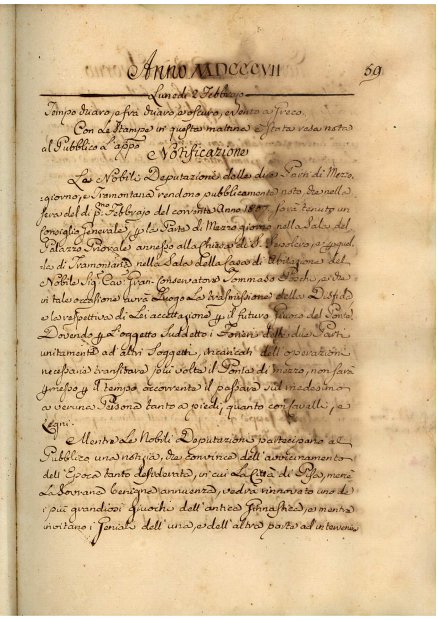 Anno MDCCCVII
59
Lunedì 2 Febbrajo
Tempo chiaro, e frà chiaro e oscuro, e vento a Greco.
Con le stampe in questa mattina è stata resa nota
al Pubblico l'appo
Notificazione
La Nobile Deputazione delle due Parti di Mezzo.
giorno, e Tramontana rendono pubblicamente noto che nella
sera del dì Febbrajo del corrente Anno 1807 sarà tenuto un
Consiglio Generale, la Parte di Mezzo giorno nella Sala del
Palazzo Priorale annesso alla Chiesa di S.
di Tramontana nella Sala della Casa di abitazione del
Nobile Sig. Cav. Gran-Conservatore Tommaso Poschi, e che
in tale occasione avrà luogo la trasmissione della Disfida
e la respettiva di Lei accettazione il futuro Giuoco del Ponte
Dovendo l'oggetto suddetto i Forieri delle due Parti
unitamente ad altri Soggetti, incaricati dell'operazioni
necessarie transitare, più volte il Ponte di mezzo, non sarà
il tempo occorrente il passare sul medesimo
a veruna Persona tanto a piedi, quanto con Cavalli, e
Legni.
Mentre le Nobili Deputazioni partecipano al
Pubblico una notizia, che convince dell'avvicinamento
dell'Epoca tanto desiderata, in cui la Città di Pisa, mercè
la Sovrana benigna annuenza, vedrà rinnovato uno de
i più grandiosi giuochi dell'antica Ginnastica, e mentre
invitano i Geniali dell'una, e dell'altra parte ad intervenire